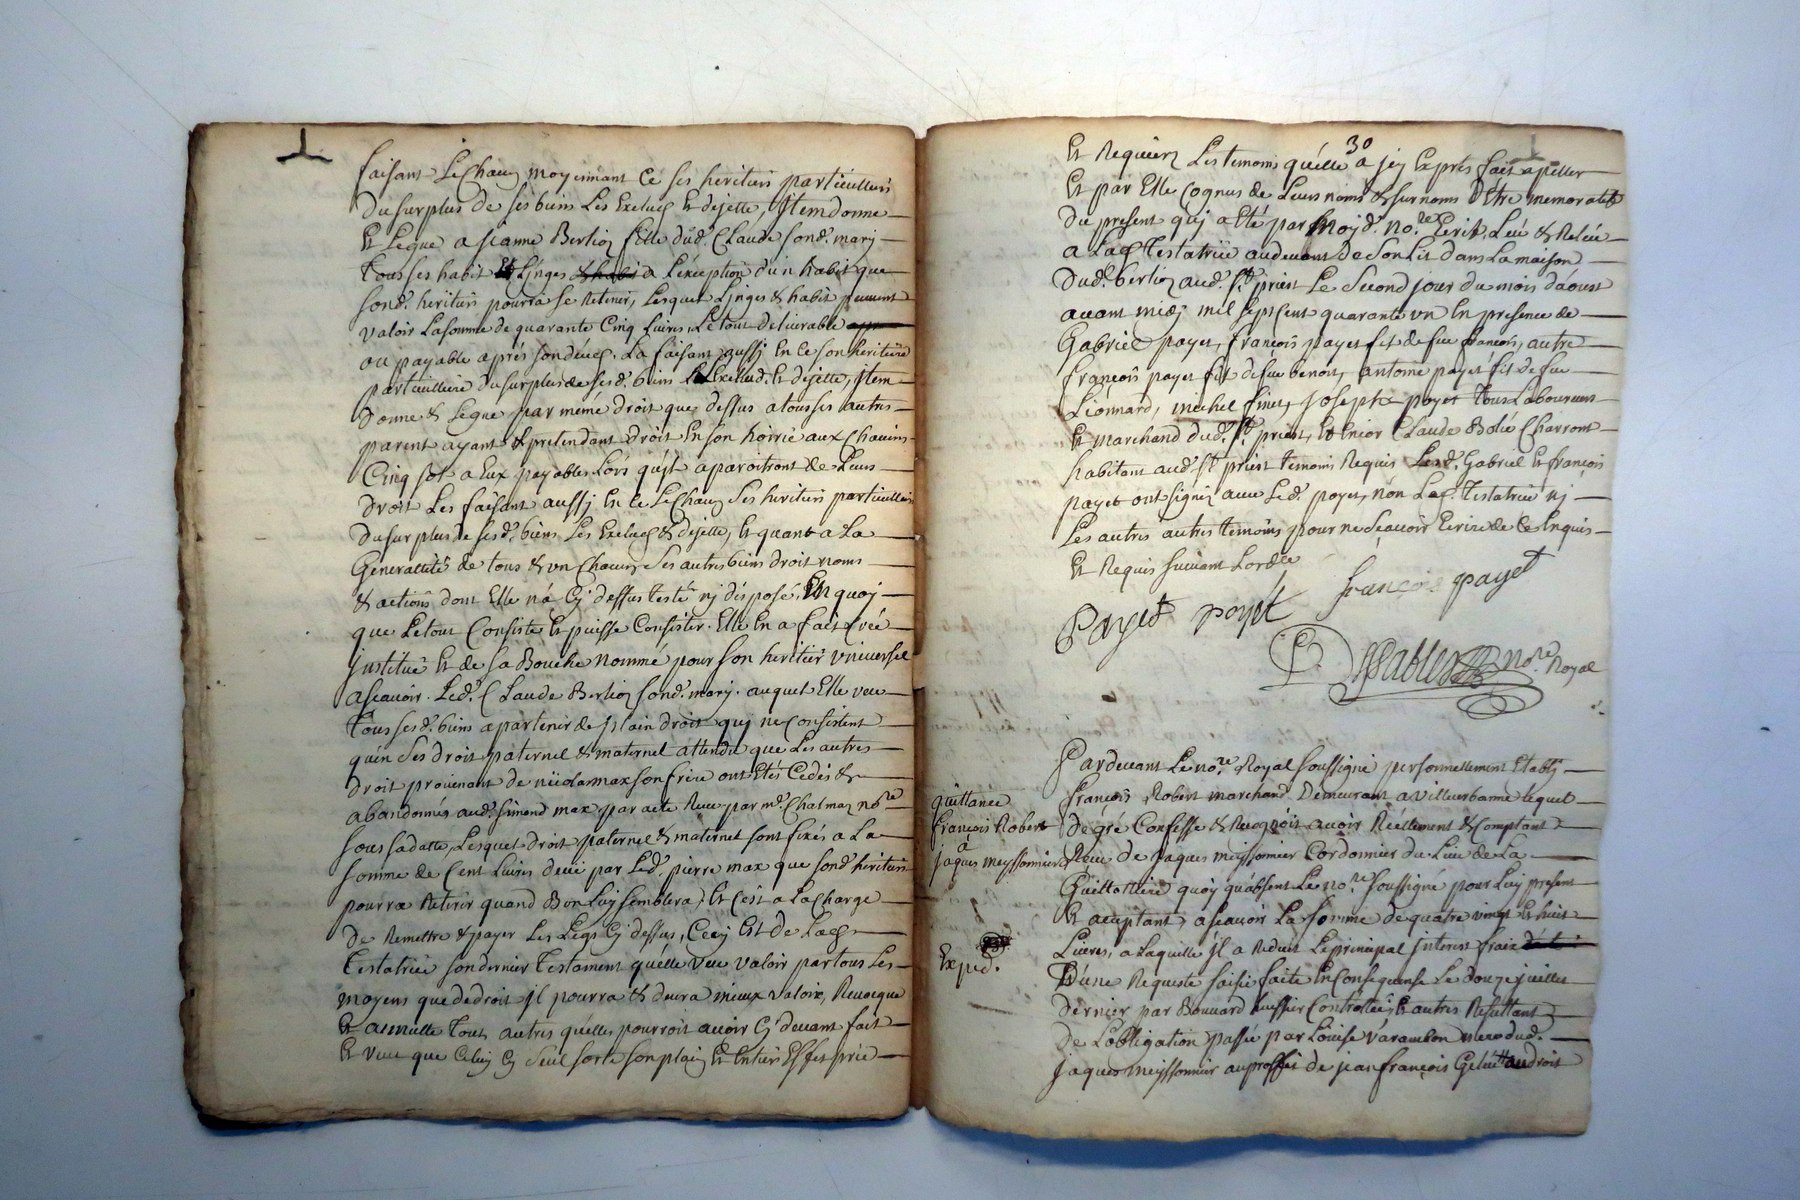 faisant Le Chacun moyennant Ce ses heritiers particulliers
du surplus de ses biens Les Exclues Et dejette, Item donne
Et Legue a jeanne Berlioz fille dud. Claude sond. mary
tous ses habit Et Linges & habit a L'exception d'un habit que
sond. heritiers pourra se Retenir, Lesquel Linges & habit peuvent
valoir La somme de quarante Cinq Livres, Le tout delivrable
ou payable aprés son déces. La faisant aussy En Ce son heritiere
particulliere du surplus de sesd. biens L'Exclud. Et dejette, Item
donne & Legue par méme droit que dessus a tous ses autres
parent ayant & pretendant droit En son hoirie aux Chacuns
Cinq sol a Eux payables Lors qu'jl aparoitront de Leurs
droit Les faisant aussy En Ce Le Chacun ses heritiers particulliers
du surplus de sesd. biens Les Exclues & dejette, Et quant a La
Generallité de tous & un Chacuns ses autres biens droit noms
& actions dont Elle n'a Cy dessus testé ny disposé, En quoy
que Le tout Consiste Et puisse Consister. Elle En a fait Créé
jnstitué Et de sa Bouche nommé pour son heritier universel
a scavoir. Led. Claude Berlioz sond. mary. auquel Elle veu
tous sesd. biens apartenir de plain droit quj ne Consistent
qu'en ses droit paternel & maternel attendu que Les autres
droit provenant de nicolas max son frere ont Etés Cedés &
abandonnés aud. simond max par acte Reçu par me. Chalmas nore
sous sa datte, Lesquel droit paternel & maternel sont fixés a La
somme de Cent Livres deue par Led. pierre max que sond. heritier
pourra Retirer quand Bon Luy semblera, Et C'est a La Charge
de Remettre & payer Les Legs Cy dessus, Cecy Est de Lad.
testatrice son dernier testament qu'elle veu valoir par tous Les
moyens que de droit jl pourra & devra mieux valoir, Revocque
Et annulle tout autres qu'elle pourroit avoir Cy devant fait
Et veu que Celuy Cy seul sorte son plain Et Entier Effet prie
30
Et Requiers Les temoins qu'elle a jcy Exprés fait apeller
Et par Elle Cognus de Leurs noms & surnoms d'Etre memoratifs
du present quj a Eté par moyd. nore Ecrit, Leu & Releu
a Lad. testatrice au devant de son Lit dans La maison
dud. berlioz aud. st. priest Le second jour du mois d'aoust
avant midy mil sept Cent quarante un En presence de
Gabriel payet, françois payet fils de feu francois, autre
françois payet fils de feu benoit, antoine payet fils de feu
Lionnard, michel finet, joseph payet tous Laboureurs
Et marchand dud. st. priest, Et Claude Bolié Charront
habitant aud. st. priest temoins Requis Lesd. Gabriel Et françois
payet ont signés avec Led. payet, non Lad. testatrice nj
Les autres autres temoins pour ne Scavoir Ecrire de Ce Enquis
Et Requis suivant Lordce
françois payet
Payet poyet
Desables nore Royal
Pardevant Le nore Royal soussigné personnellement Etablj
françois Robert marchand Demeurant a villeurbanne lequel
de gré Confesse & Recognoit avoir Réellement & Comptant
Reçu de jaques meyssonnier Cordonnier du Lieu de La
Guillottiere quoy qu'absent Le nore soussigné pour Luy present
Et acceptant, a scavoir La somme de quatre vingt Et huit
Livres, a Laquelle jl a Reduit Le principal jnterest fraix
D'une Requeste saisie faite En Consequense Le douze juillet
dernier par Bouvard huissier Controllée, Et autres Resultant
de L'obligation passée par Louise Varambon mere dud.
jaques meyssonnier au proffit de jean françois Gelut au droit
quittance
françois Robert
a
jaques meyssonnier
Exped.